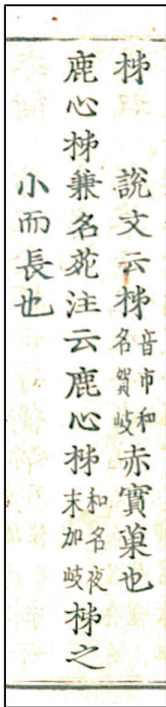 柹 說文云柹音市和名賀岐赤實菓也
鹿心柹 兼名苑注云鹿心柹和名夜末加岐柹之
小而長也